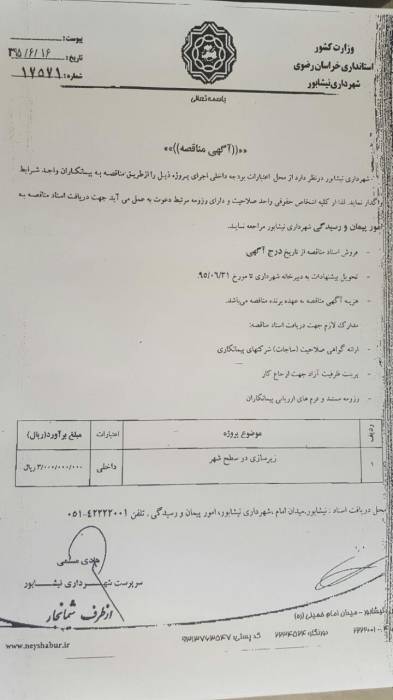 وزارت کشور
استانداری خراسان رضوی
شهرداری نیشابور
پیوست:
تاریخ: ۳۹۵/۶/۱۶
شماره: ۱۷۵۷۱
باسمه تعالی
««((آگهی مناقصه))»»
شهرداری نیشابور درنظر دارد از محل اعتبارات بودجه داخلی اجرای پروژه ذیل را ازطریق مناقصه به پیمانکاران واجد شرایط
واگذار نماید. لذا از کلیه اشخاص حقوقی واجد صلاحیت و دارای رزومه مرتبط دعوت به عمل می آید جهت دریافت اسناد مناقصه به
امور پیمان و رسیدگی شهرداری نیشابور مراجعه نمایند.
- فروش اسناد مناقصه از تاریخ درج آگهی
- تحویل پیشنهادات به دبیرخانه شهرداری تا مورخ ۹۵/۰۶/۳۱
- هزینه آگهی مناقصه به عهده برنده مناقصه می‌باشد.
مدارک لازم جهت دریافت اسناد مناقصه:
- ارائه گواهی صلاحیت (ساجات) شرکتهای پیمانکاری
- پرینت ظرفیت آزاد جهت ارجاع کار
- رزومه مستند و فرم های ارزیابی پیمانکاران
ردیف موضوع پروژه اعتبارات مبلغ برآورد(ریال)
۱ زیرسازی در سطح شهر داخلی ۳/۰۰۰/۰۰۰/۰۰۰ ریال
محل دریافت اسناد : نیشابور،میدان امام ،شهرداری نیشابور، امور پیمان و رسیدگی . تلفن ۴۲۲۲۲۰۰۱-۰۵۱
هادی سلیمی
سرپرست شهرداری نیشابور
از طرف شمانجار
نیشابور - میدان امام خمینی (ره)
دورنگار: ۲۲۳۴۵۲۴ کد پستی: ۹۳۱۳۷۷۳۵۴۷
www.neyshabur.ir